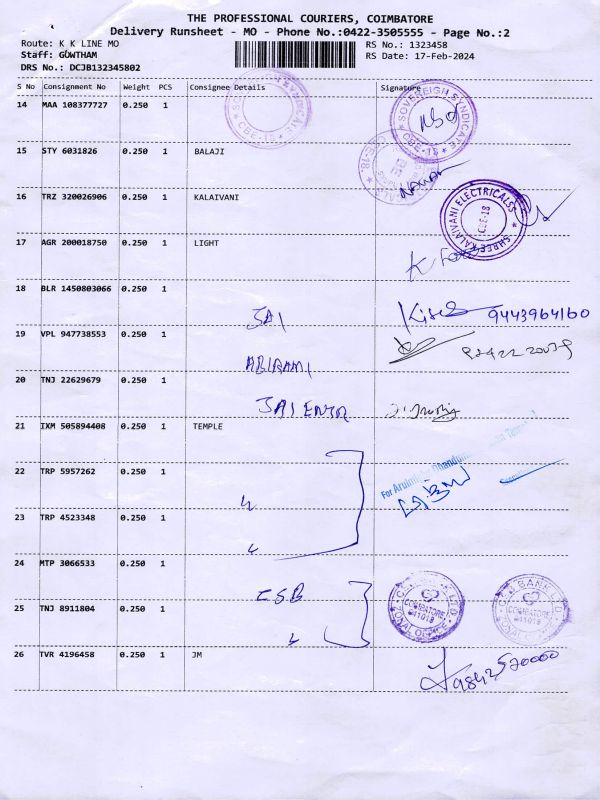 THE PROFESSIONAL COURIERS, COIMBATORE
Delivery Runsheet - MO - Phone No.:0422-3505555 - Page No.:2
Route: K K LINE MO
RS No.: 1323458
Staff: GOWTHAM
RS Date: 17-Feb-2024
DRS No.: DCJB132345802
S No Consignment No Weight PCS Consignee Details Signature
14 MAA 108377727 0.250 1
SOVEREIGN SYNDICATE
CBE-18
15 STY 6031826 0.250 1 BALAJI
16 TRZ 320026906 0.250 1 KALAIVANI
SHREE KALAIVANI ELECTRICALSS
CBE-18
17 AGR 200018750 0.250 1 LIGHT
18 BLR 1450803066 0.250 1
JAI 9443964160
19 VPL 947738553 0.250 1
ABIRAMI
20 TNJ 22629679 0.250 1
JAI
21 IXM 505894408 0.250 1 TEMPLE
For
22 TRP 5957262 0.250 1
23 TRP 4523348 0.250 1
24 MTP 3066533 0.250 1
CSB
BANK LTD.
COIMBATORE
641018
ZONAL OFFICE
BANK LTD.
COIMBATORE
641018
ZONAL OFFICE
25 TNJ 8911804 0.250 1
26 TVR 4196458 0.250 1 JM
9842520000